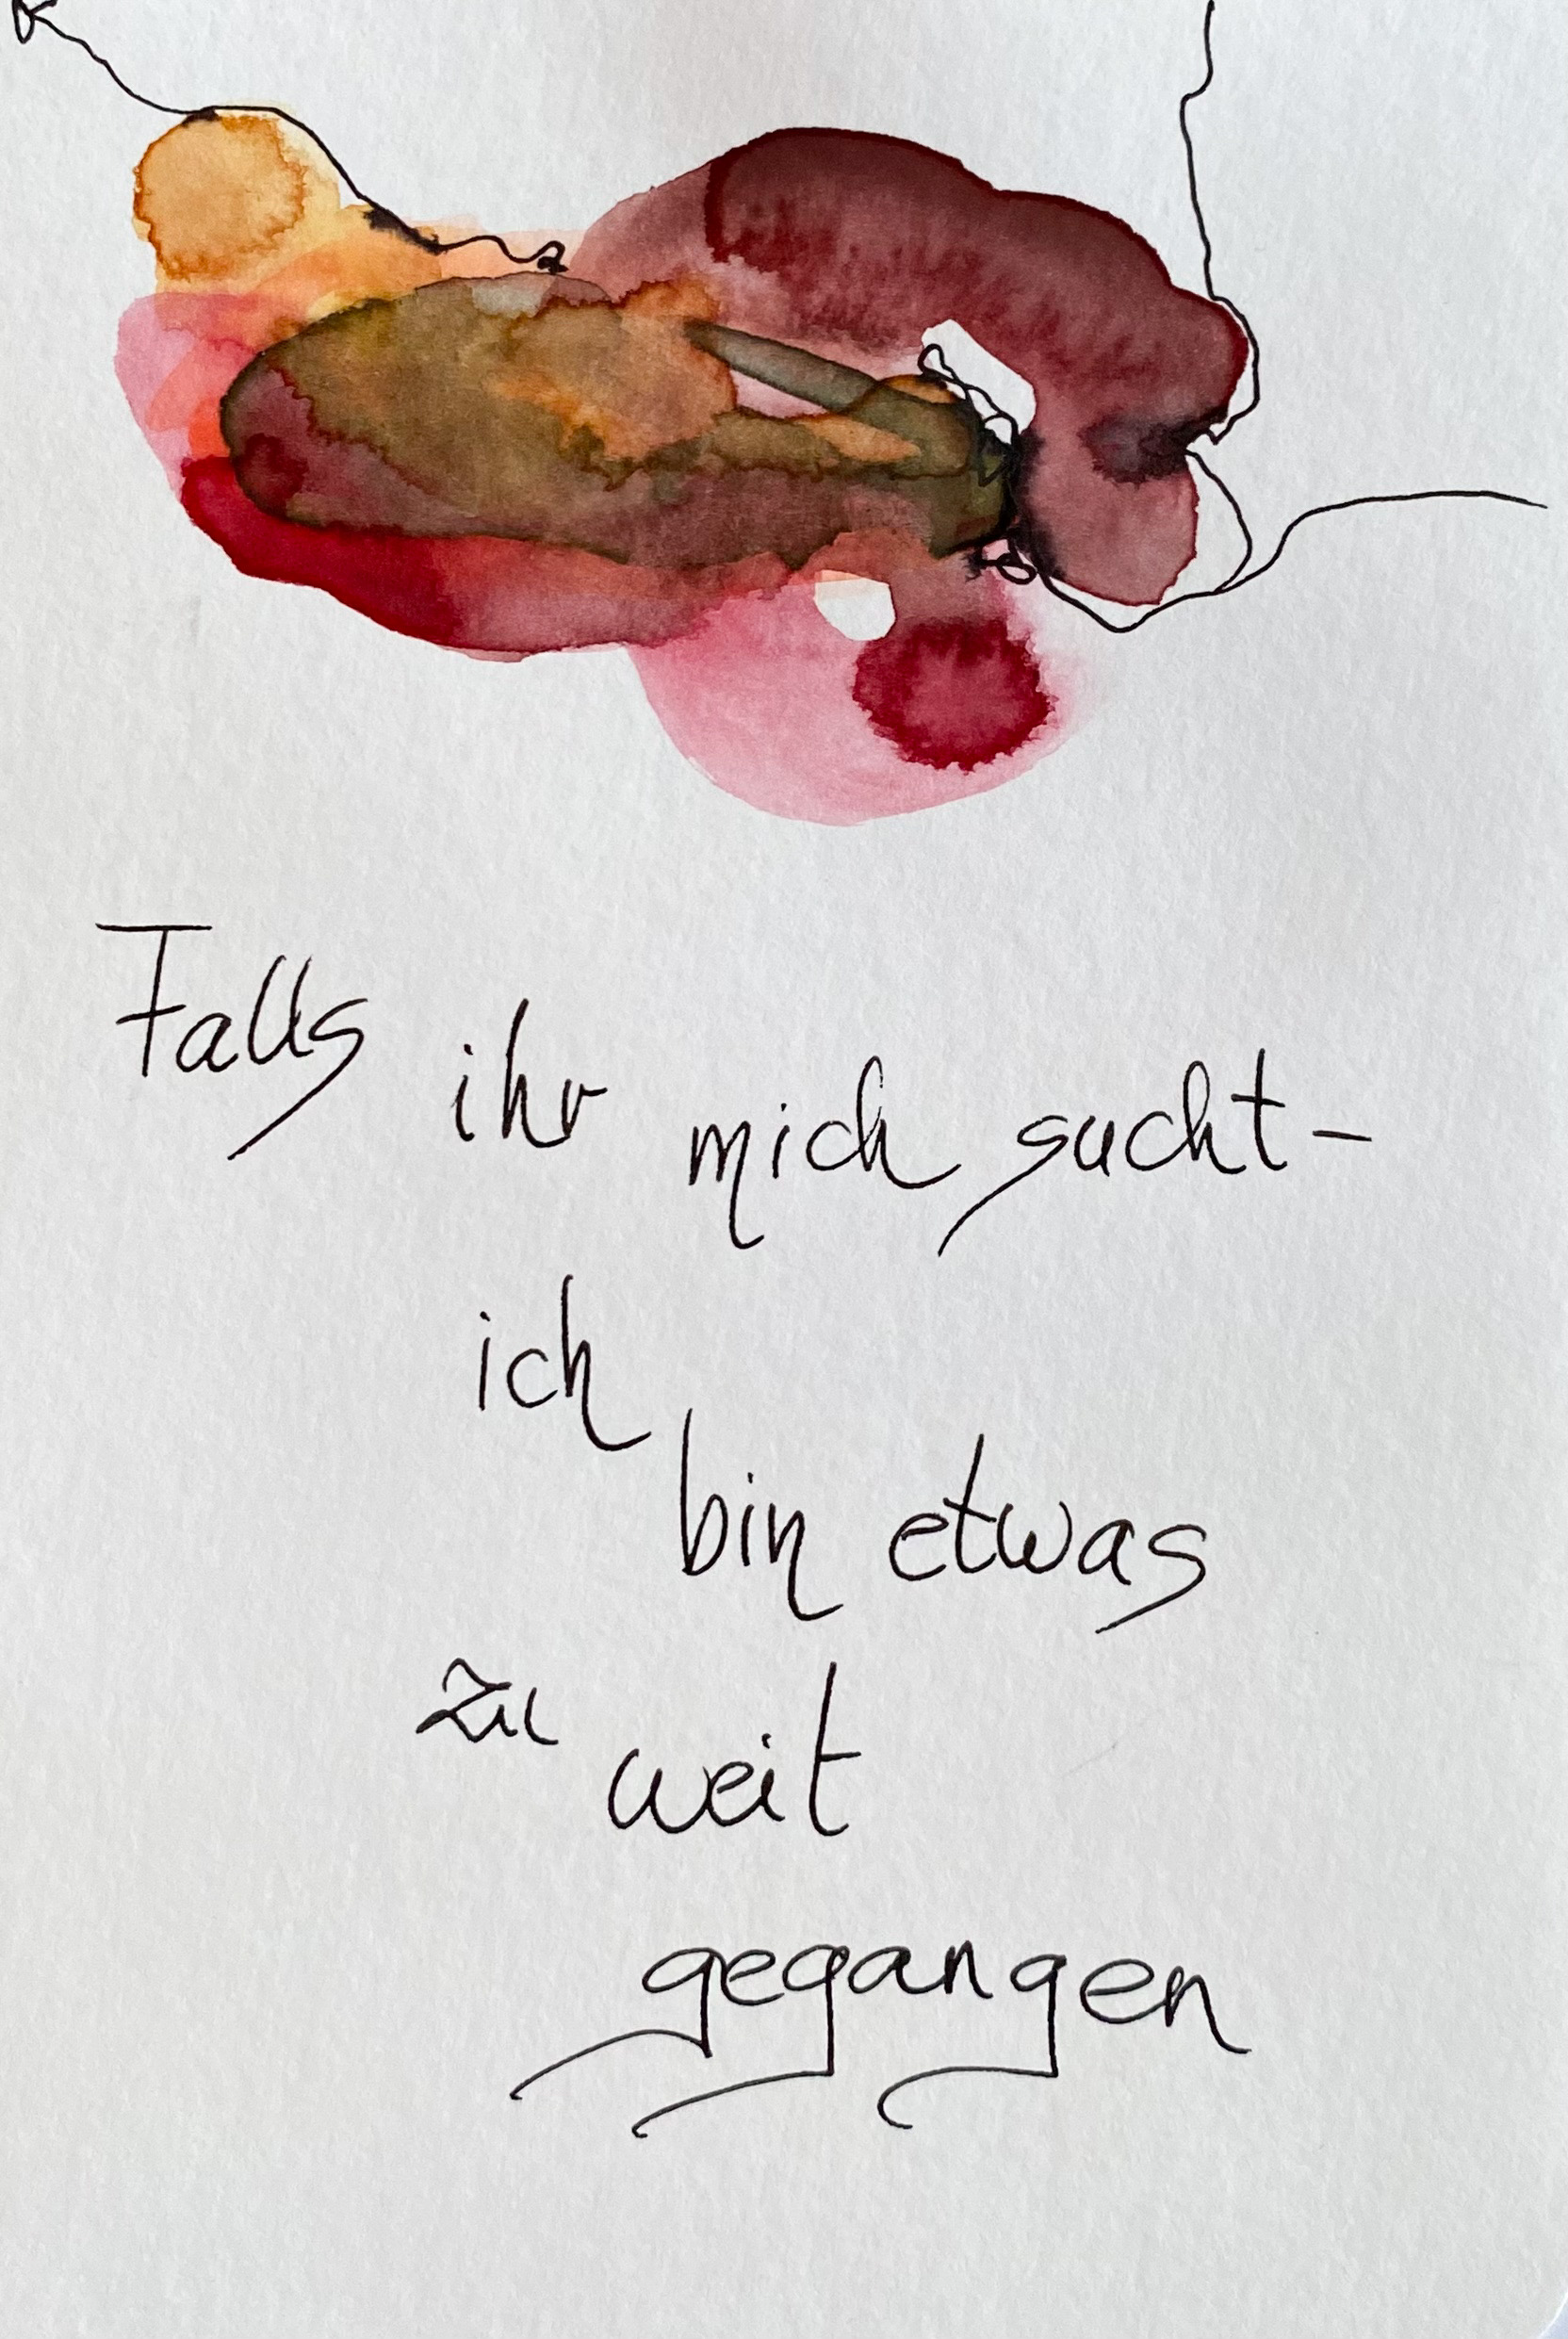 Falls ihr mich sucht -
ich
bin etwas
zu weit
gegangen